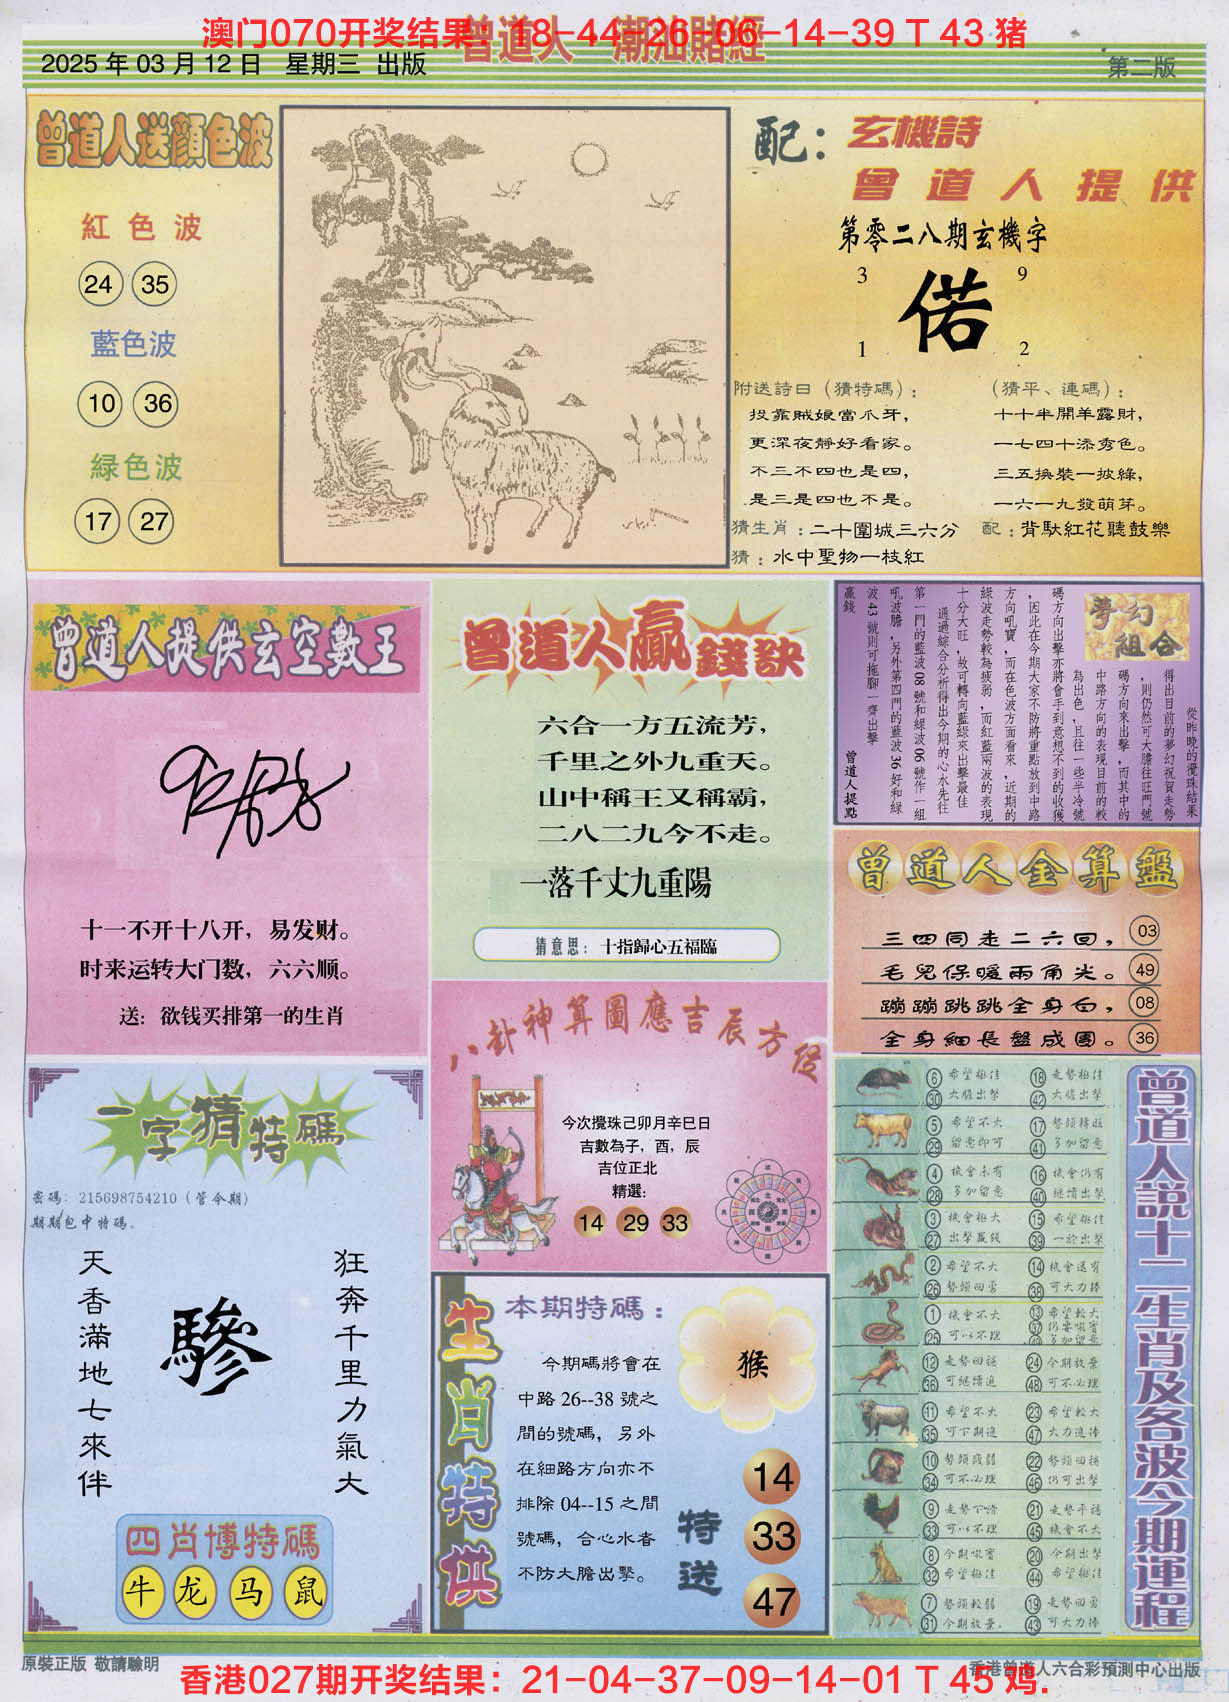 澳门070开奖结果：18-44-26-06-14-39 T 43 猪
曾道人 潮汕賭經
2025 年 03 月 12 日 星期三 出版
第二版
曾道人送顏色波
紅色波
24 35
藍色波
10 36
緑色波
17 27
配：玄機詩
曾道人提供
第零二八期玄機字
3 9
偌
1 2
附送詩曰（猜特碼）：
投靠賊娘當爪牙，
更深夜靜好看家。
不三不四也是四，
是三是四也不是。
（猜平、連碼）：
十十半開羊露財，
一七四十添秀色。
三五換裝一披綠，
一六一九發萌芽。
猜生肖：二十圍城三六分
配：背馱紅花聽鼓樂
猜：水中聖物一枝紅
曾道人提供玄空數王
十一不开十八开，易发财。
时来运转大门数，六六顺。
送：欲钱买排第一的生肖
曾道人贏錢訣
六合一方五流芳，
千里之外九重天。
山中稱王又稱霸，
二八二九今不走。
一落千丈九重陽
猜意思：十指歸心五福臨
夢幻組合
從昨晚的攪珠結果
得出目前的夢幻祝賀走勢
，則仍然可大膽往旺門號
碼方向來出擊，而其中的
中路方向的表現目前的較
為出色，且往一些半冷號
碼方向出擊亦將會手到意想不到的收獲
，因此在今期大家不防將重點放到中路
方向吼寶，而在色波方面看來，近期的
綠波走勢較為疲弱，而紅藍兩波的表現
十分大旺，故可轉向藍綠來出擊最佳
通過綜合分析得出今期的心水先往
第一門的藍波 08 號和綠波 06 號作一組
吼波膽，另外第四門的藍波 36 好和綠
波 43 號則可拖腳一齊出擊
贏錢
曾道人提點
曾道人金算盤
三四同走二六回， 03
毛兒保暖兩角尖。 49
蹦蹦跳跳全身白， 08
全身細長盤成團。 36
一字猜特碼
密碼：215698754210（管令期）
期期包中特碼。
狂奔千里力氣大
驂
天香滿地七來伴
四肖博特碼
牛 龙 马 鼠
八卦神算圖應吉辰方位
今次攪珠己卯月辛巳日
吉數為子，酉，辰
吉位正北
精選:
14 29 33
生肖特供
本期特碼：
今期碼將會在
中路 26--38 號之
間的號碼，另外
在細路方向亦不
排除 04--15 之間
號碼，合心水者
不防大膽出擊。
猴
特送
14
33
47
曾道人説十二生肖及各波今期運程
6 希望極佳 18 走勢極佳
30 大膽出擊 42 大膽出擊
5 希望不大 17 勢頭轉旺
29 留意即可 41 多加留意
4 機會未有 16 機會仍有
28 多加留意 40 繼續出擊
3 機會極大 15 希望極佳
27 出擊贏錢 39 一於出擊
2 希望不大 14 機會還有
26 勢頭回勇 38 可大力捧
1 機會不大 13 希望較大
25 可以不理 37 仍要吼實
49 多加留意
12 走勢回穩 24 今期放棄
36 可繼續追 48 可不必理
11 希望不大 23 希望較大
35 可下期追 47 大力追捧
10 勢頭疲弱 22 勢頭回穩
34 可不必理 46 仍可出擊
9 走勢下滑 21 走勢平穩
33 可以不理 45 機會不大
8 今期吼實 20 今期出擊
32 希望極佳 44 希望極佳
7 勢頭較弱 19 走勢回勇
31 今期放棄。 43 可大力捧
原裝正版 敬請驗明
香港曾道人六合彩預測中心出版
香港027期开奖结果：21-04-37-09-14-01 T 45 鸡.